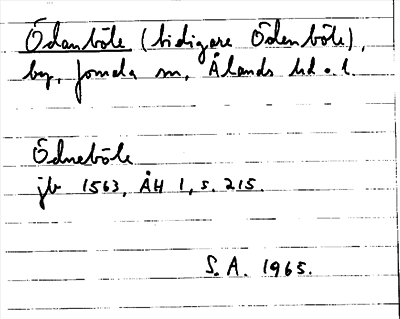 Ödanböle (tidigare Ödenböle),
by, Jomala sn, Ålands hd o. l.
Ödneböle
jb 1563, ÅH 1, s. 215.
S. A. 1965.